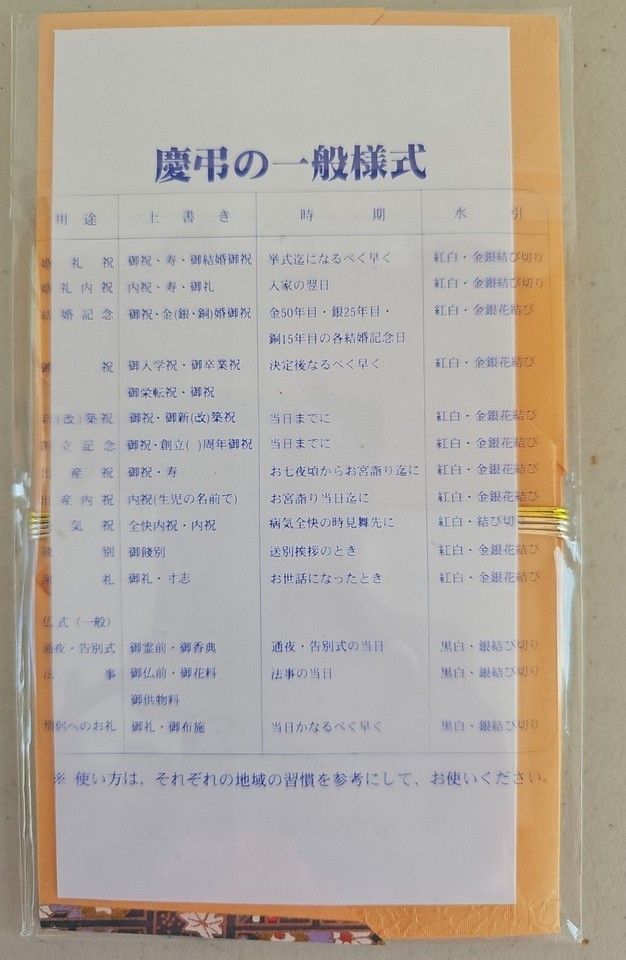 慶弔の一般様式
用途 上書き 時期 水引
婚礼祝 御祝・寿・御結婚御祝 挙式迄になるべく早く 紅白・金銀結び切り
婚礼内祝 内祝・寿・御礼 入家の翌日 紅白・金銀結び切り
結婚記念 御祝・金(銀・銅)婚御祝 金50年目・銀25年目・ 紅白・金銀花結び
銅15年目の各結婚記念日
御祝 御入学祝・御卒業祝 決定後なるべく早く 紅白・金銀花結び
御栄転祝・御祝
新(改)築祝 御祝・御新(改)築祝 当日までに 紅白・金銀花結び
創立記念 御祝・創立( )周年御祝 当日までに 紅白・金銀花結び
出産祝 御祝・寿 お七夜頃からお宮詣り迄に 紅白・金銀花結び
出産内祝 内祝(生児の名前で) お宮詣り当日迄に 紅白・金銀花結び
気祝 全快内祝・内祝 病気全快の時見舞先に 紅白・結び切り
餞別 御餞別 送別挨拶のとき 紅白・金銀花結び
謝礼 御礼・寸志 お世話になったとき 紅白・金銀花結び
仏式(一般)
通夜・告別式 御霊前・御香典 通夜・告別式の当日 黒白・銀結び切り
法事 御仏前・御花料 法事の当日 黒白・銀結び切り
御供物料
僧侶へのお礼 御礼・御布施 当日かなるべく早く 黒白・銀結び切り
※ 使い方は、それぞれの地域の習慣を参考にして、お使いください。